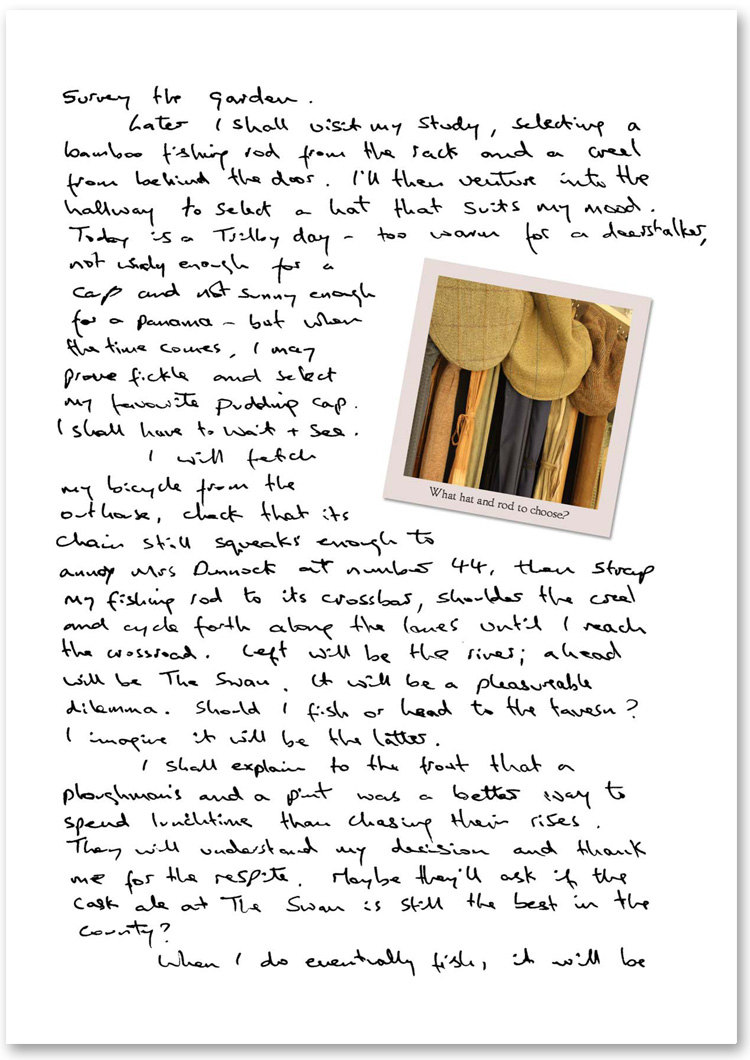 survey the garden.
Later I shall visit my study, selecting a
bamboo fishing rod from the rack and a creel
from behind the door. I'll then venture into the
hallway to select a hat that suits my mood.
Today is a Trilby day – too warm for a deerstalker,
not windy enough for a
cap and not sunny enough
for a panama – but when
the time comes, I may
prove fickle and select
my favourite pudding cap.
I shall have to wait + see.
I will fetch
my bicycle from the
outhouse, check that its
chain still squeaks enough to
annoy Mrs Dunnock at number 44, then strap
my fishing rod to its crossbar, shoulder the creel
and cycle forth along the lanes until I reach
the crossroad. Left will be the river; ahead
will be The Swan. It will be a pleasureable
dilemma. Should I fish or head to the tavern?
I imagine it will be the latter.
I shall explain to the trout that a
ploughman's and a pint was a better way to
spend lunchtime than chasing their rises.
They will understand my decision and thank
me for the respite. Maybe they'll ask if the
cask ale at The Swan is still the best in the
county?
When I do eventually fish, it will be
What hat and rod to choose?